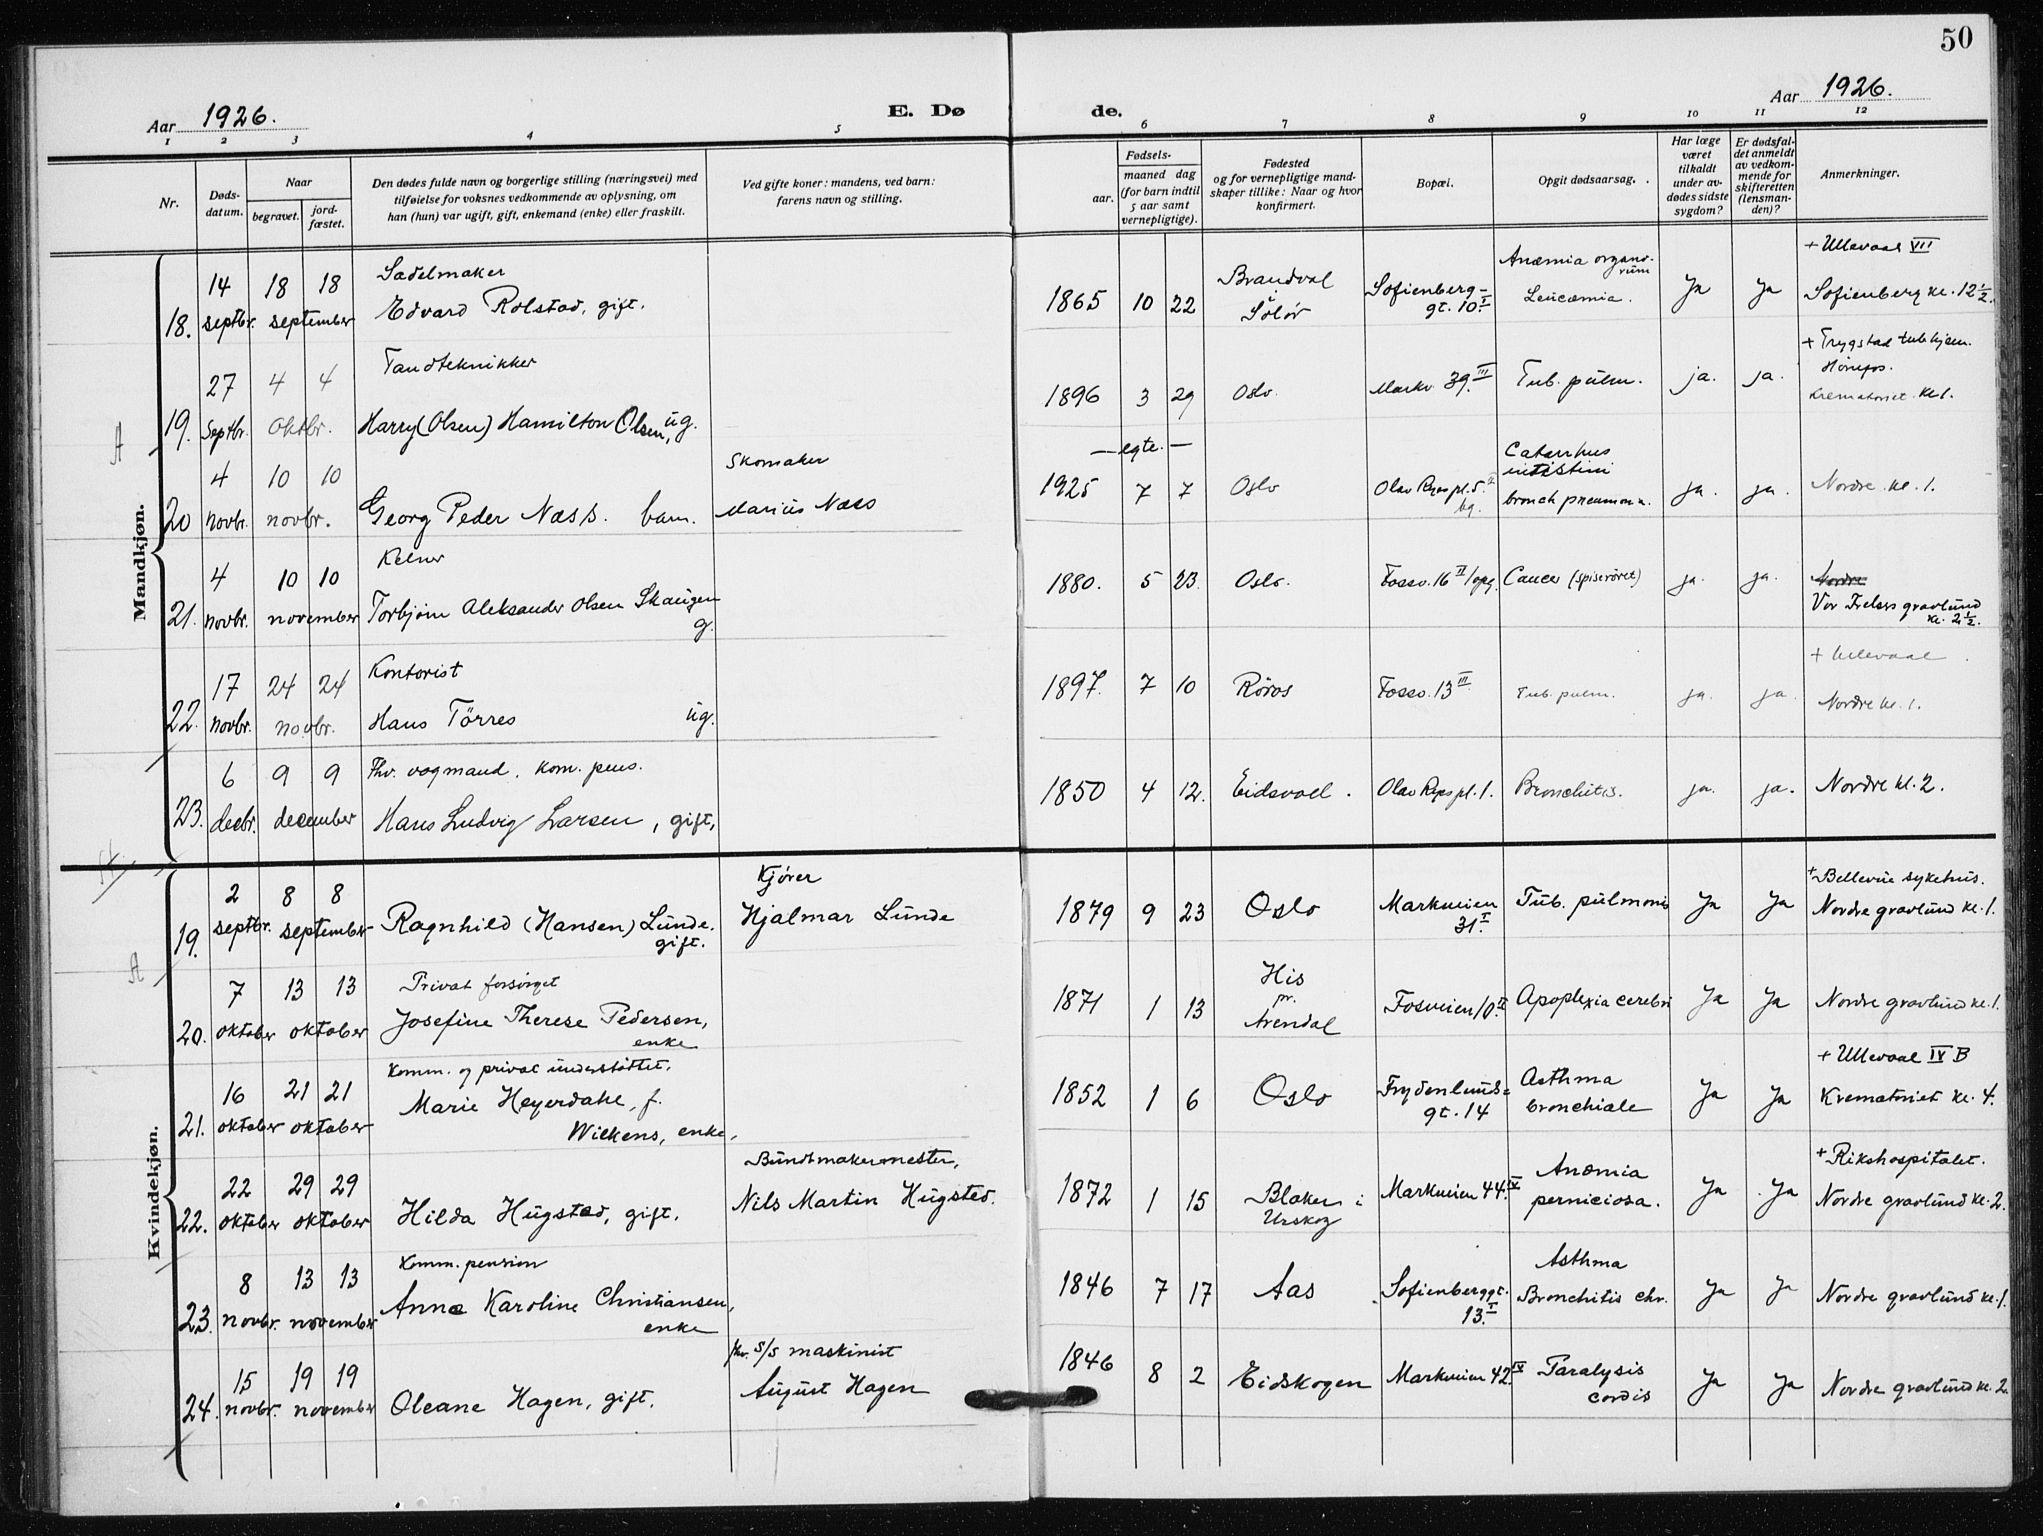 50
Aar 1926. E. Dø de. Aar 1926.
1 2 3 4 5 6 7 8 9 10 11 12
Nr.
Døds-
datum.
Naar
begravet.
jord-
fæstet.
Den dødes fulde navn og borgerlige stilling (næringsvei) med
tilføielse for voksnes vedkommende av oplysning, om
han (hun) var ugift, gift, enkemand (enke) eller fraskilt.
Ved gifte koner: mandens, ved barn:
farens navn og stilling.
Fødsels-
aar.
maaned dag
(for barn indtil
5 aar samt
vernepligtige).
Fødested
og for vernepligtige mand-
skaper tillike: Naar og hvor
konfirmert.
Bopæl.
Opgit dødsaarsag.
Har læge
været
tilkaldt
under av-
dødes sidste
sygdom?
Er dødsfal-
det anmeldt
av vedkom-
mende for
skifteretten
(lensman-
den)?
Anmerkninger.
Mandkjøn.
18. 14 septbr. 18 18 september
Sadelmaker
Edvard Rolstad, gift.
1865 10 22
Brandval
i
Solør
Sofienberg-
gt. 10 I
Anæmia organo-
rum
Leucæmia.
Ja Ja
+ Ullevaal VII
Sofienberg kl. 12 1/2.
19. 27 Septbr. 4 4 oktbr.
Tandtekniker
Harry (Olsen) Hamilton Olsen, ug.
1896 3 29 Oslo Markv. 39 III Tub. pulm. ja. ja.
+ Trygstad tubhjem.
Hønefos.
Krematoriet kl 1.
20 4 novbr. 10 10 novbr.
Georg Peder Næss. barn.
Skomaker
Marius Næss
— egte. —
1925 7 7 Oslo Olav Ryes pl. 5. II
bg.
Catarrhus
intestini
bronch pneumonia.
ja. ja. Nordre kl. 1.
21. 4 novbr. 10 10 november
Kelner
Torbjørn Aleksander Olsen Skaugen
g.
1880. 5 23. Oslo. Fossv. 16 II /opg. Cancer (spiserøret) ja. ja.
Nordre
Vor Frelsers gravlund
kl. 2 1/2.
22. 17 novbr. 24 24 novbr.
Kontorist
Hans Törres ug.
1897. 7 10 Röros Fossv. 13 III Tub. pulm. ja. ja.
+ Ullevaal
Nordre kl. 1.
23. 6 decbr. 9 9 december
Fhv. vogmand. kom. pens.
Hans Ludvig Larsen, gift,
1850 4 12. Eidsvoll. Olav Ryes pl. 1. Bronchitis. ja. ja. Nordre kl. 2.
Kvindekjøn.
19. 2 septbr. 8 8 september
Ragnhild (Hansen) Lunde.
gift.
Kjører
Hjalmar Lunde
1879 9 23 Oslo
Markveien
31. I
Tub. pulmonis Ja Ja
+ Bellevue sykehus.
Nordre gravlund kl. 1.
20. 7 oktober 13 13 oktober
Privat forsørget
Josefine Therese Pedersen,
enke
1871 1 13
His
pr.
Arendal
Fosveien 10 II Apoplexia cerebri Ja Ja Nordre gravlund kl. 1.
21. 16 oktober 21 21 oktober
Komm. og privat understøttet.
Marie Heyerdahl, f.
Wilkens, enke,
1852 1 6 Oslo
Frydenlunds=
gt. 14
Asthma
bronchiale
Ja Ja
+ Ullevaal IV B
Krematoriet kl. 4.
22. 22 oktober 29 29 oktober
Hilda Hugsted, gift.
Buntmakermester,
Nils Martin Hugsted.
1872 1 15
Blaker i
Urskog
Markveien 44. IV
Anæmia
perniciosa.
Ja Ja
+ Rikshospitalet.
Nordre gravlund kl. 2.
23. 8 novbr. 13 13 november
Komm. pension
Anna Karoline Christiansen,
enke
1846 7 17 Aas
Sofienberggt.
13. I
Asthma
Bronchitis chr.
Ja Ja Nordre gravlund kl. 1.
24. 15 novbr. 19 19 november
Oleane Hagen, gift.
fhv. S/S maskinist
August Hagen
1846 8 2 Eidskogen Markveien 42. IV
Paralysis
cordis
Ja Ja Nordre gravlund kl. 2.